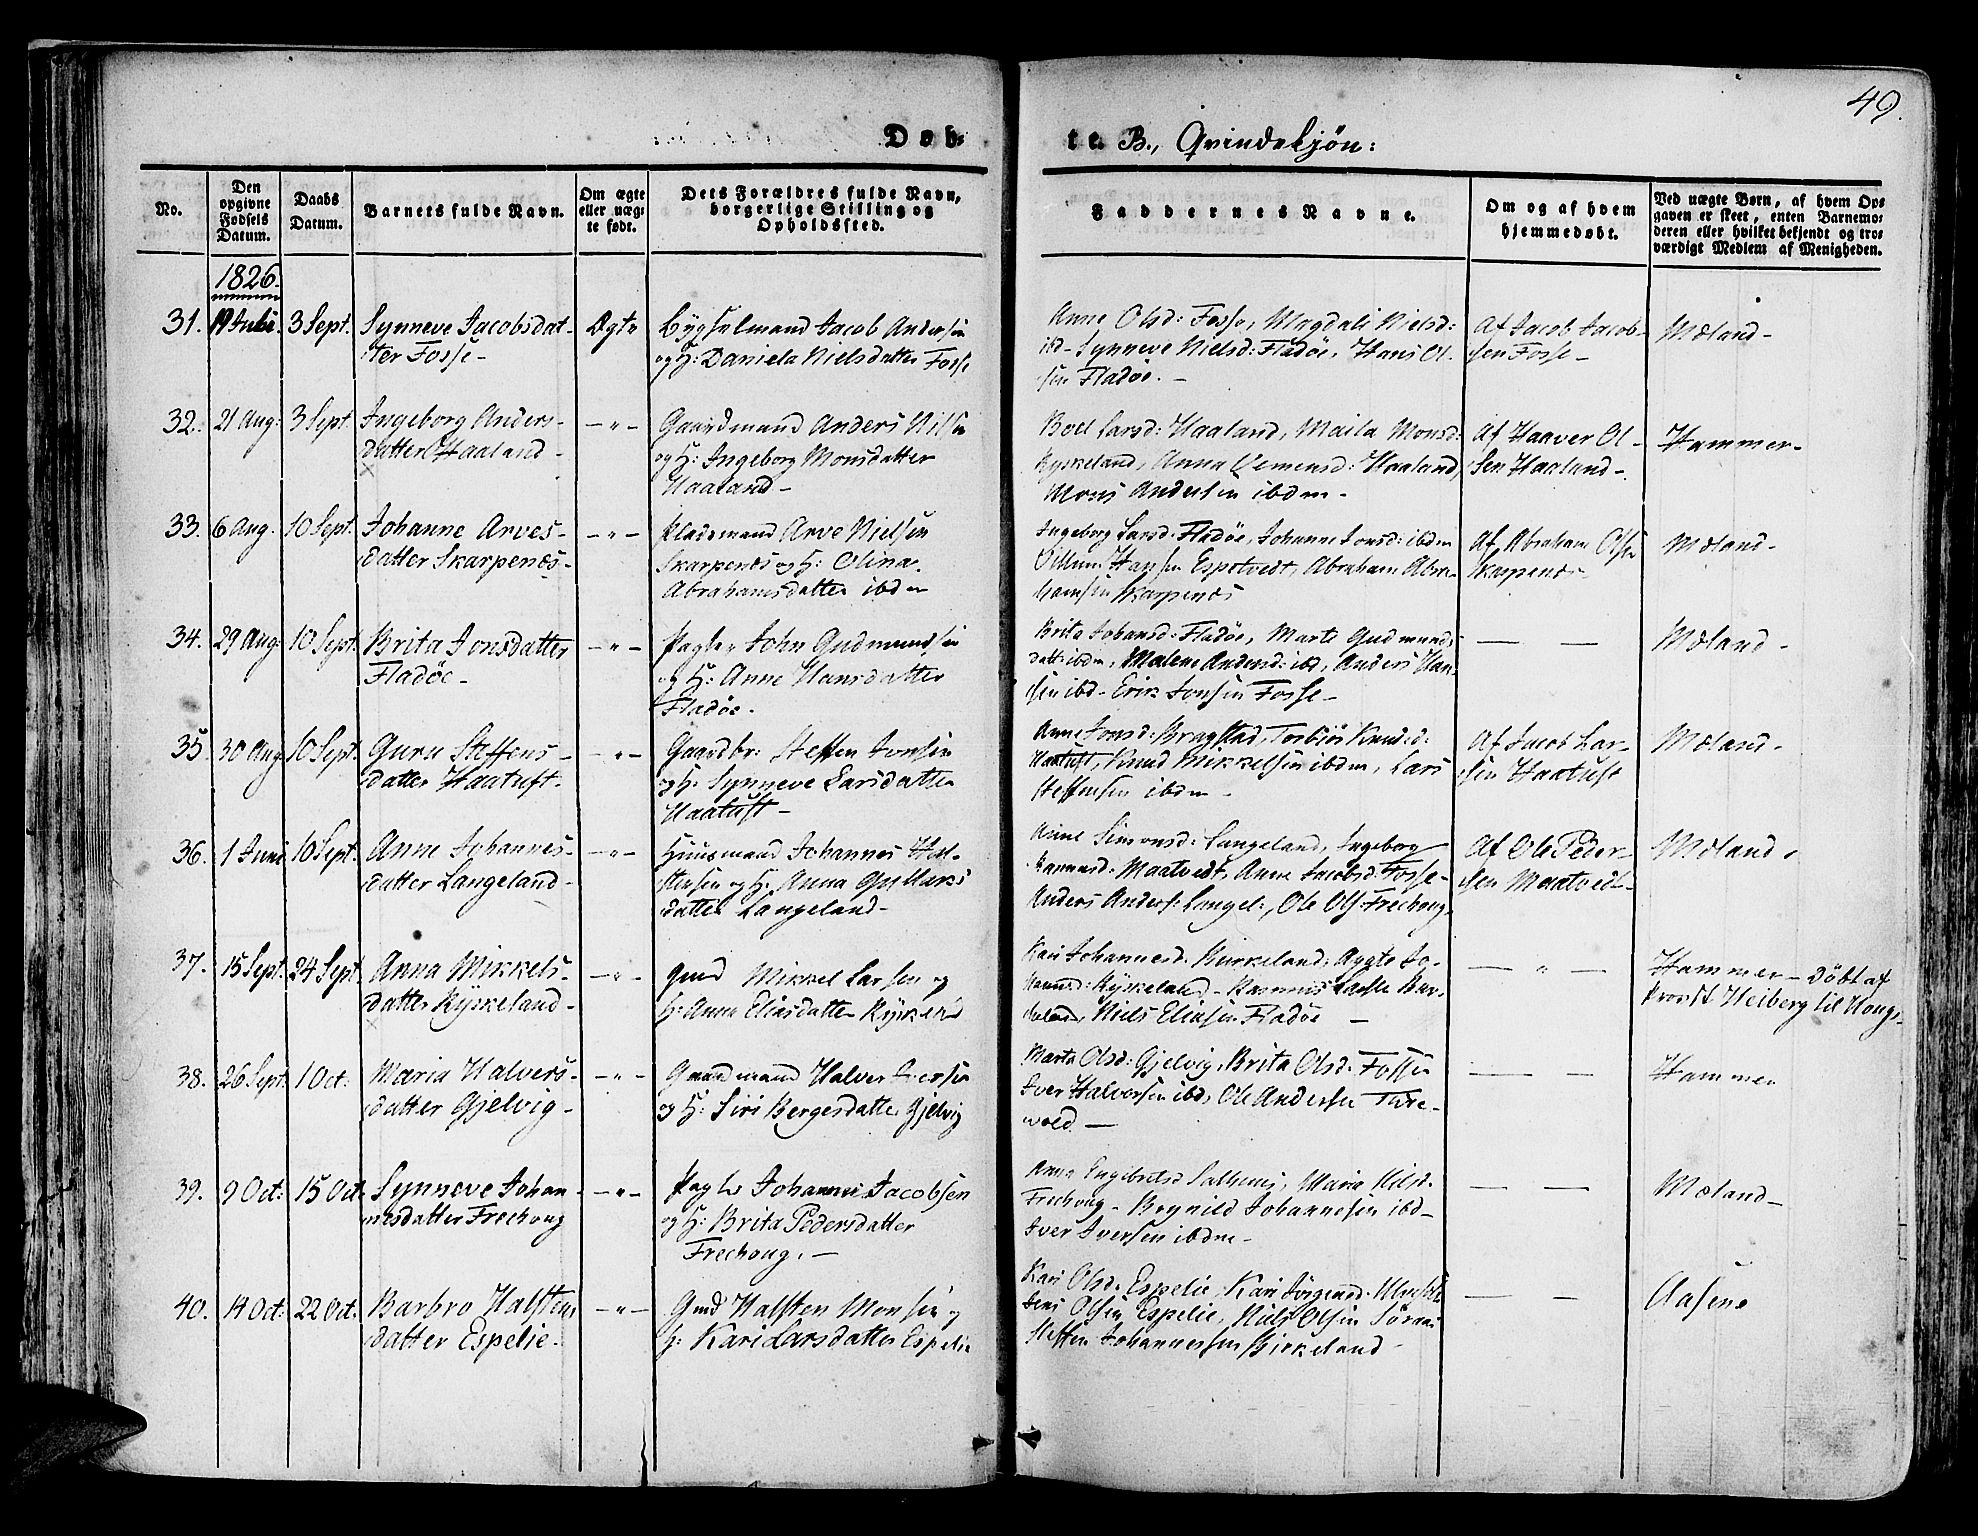 49.
Døb-
te. B., Qvindekjön:
No.
Den opgivne Fødsels Datum.
Daabs Datum.
Barnets fulde Navn.
Om ægte eller uæg- te født.
Dets Forældres fulde Navn, borgerlige Stilling og Opholdssted.
Faddernes Navne.
Om og af hvem hjemmedøbt.
Ved uægte Børn, af hvem Op- gaven er skeet, enten Barnemo- deren eller hvilket bekjendt og tro- værdigt Medlem af Menigheden.
1826.
31. 3 Sept. Synneve Jacobsdat- Ægte Bygselmand Jacob Andersen
ter Fosse- og H: Daniela Nielsdatter Fosse
Anne Olsd: Fosse, Magdali Nielsd:
ibd- Synneve Nielsd: Fladöe, Hans Ol-
sen Fladöe. -
Af Jacob Jacob-
sen Fosse -
Mæland -
32. 21 Aug: 3 Sept. Ingeborg Anders- -"- Gaardmand Anders Nilsen
datter Haaland - og H: Ingeborg Monsdatter
Haaland -
Boel Larsd: Haaland, Maila Monsd:
Kyrkeland, Anna Haaland,
Mons Andersen ibdm -
Af Haaver Ol-
sen Haaland -
Hammer -
33. 6 Aug. 10 Sept. Johanne Arves- -"- Pladsmand Arve Nielsen
datter Skarpenæs - Skarpenæs og H: Olina
Abrahamsdatter ibdm
Ingeborg Larsd: Fladöe, Johanne Jonsd: ibdm
Hansen Espetvedt, Abraham Abra-
hamsen Skarpenæs
Af Abraham Olsen
Skarpenæs
Mæland -
34. 29 Aug: 10 Sept. Brita Jonsdatter -"- Pagter John Gudmundsen
Fladöe - og H: Anne Hansdatter
Fladöe.
Brita Johansd: Fladöe, Marte Gudmunds
datt: ibdm, Malene Andersd: ibd, Anders Han-
sen ibd - Erik Jonsen Fosse -
— —
Mæland -
35. 30 Aug 10 Sept. Guru Steffens- -"- Gaardbr: Steffen Jonsen
datter Haatuft - og H: Synneve Larsdatter
Haatuft -
Anne Jonsd: Bragstad, Knudsd:
Haatuft, Knud Mikkelsen ibdm, Lars
Steffensen ibdm -
Af Jacob Lar-
sen Haatuft
Mæland -
36. 1 Juni 10 Sept. Anne Johannes- -"- Huusmand Johannes Hal-
datter Langeland - stensen og H: Anna Gullaks
datter Langeland -
Anne Simonsd: Langeland, Ingeborg
Maatvedt, Anne Jacobsd: Fosse -
Anders Anders: Langel:, Ole Ols: Frechoug.
Af Ole Peder-
sen Maatvedt -
Mæland.
37. 15 Sept. 24 Sept. Anna Mikkels- -"- Gmd Mikkel Larsen og
datter Kyrkeland - H: Anna Eliasdatter Kyrkel:
Kari Johannesd. Birkeland, Aagte Jo-
hannesd: Kyrkeland - Rasmus Lasse Bir-
keland, Niels Eliasen Fladöe —
— " —
Hammer - döbt af
Provst Heiberg til Houg-
38. 26 Sept. 1 Oct: Maria Halvors- -"- Gaardmand Halvor Iversen
datter Gjelvig - og H: Siri Bergesdatter Gjelvig
Marta Olsd: Gjelvig, Brita Olsd: Fosse
Iver Halvorsen ibd, Ole Andersen Ture-
vold —
— —
Hammer
39. 9 Oct: 15 Oct. Synneve Johan- -"- Pagter Johannes Jacobsen
nesdatter Frechoug og H: Brita Pedersdatter
Frechoug. -
Anna Engebretsd Maria Nilsd.
Frechoug - Johannesen ibd -
Iver Iversen ibdm -
— —
Mæland -
40. 14 Oct: 22 Oct. Barbro Halstens -"- Gmd Halsten Monsen og
datter Espelie - H: Kari Larsdatter Espelie
Kari Olsd. Espelie, Kari Jörgensd.
Jens Olsen Espelie, Niels Olsen
Steffen Johannessen Birkeland
— —
Aasene